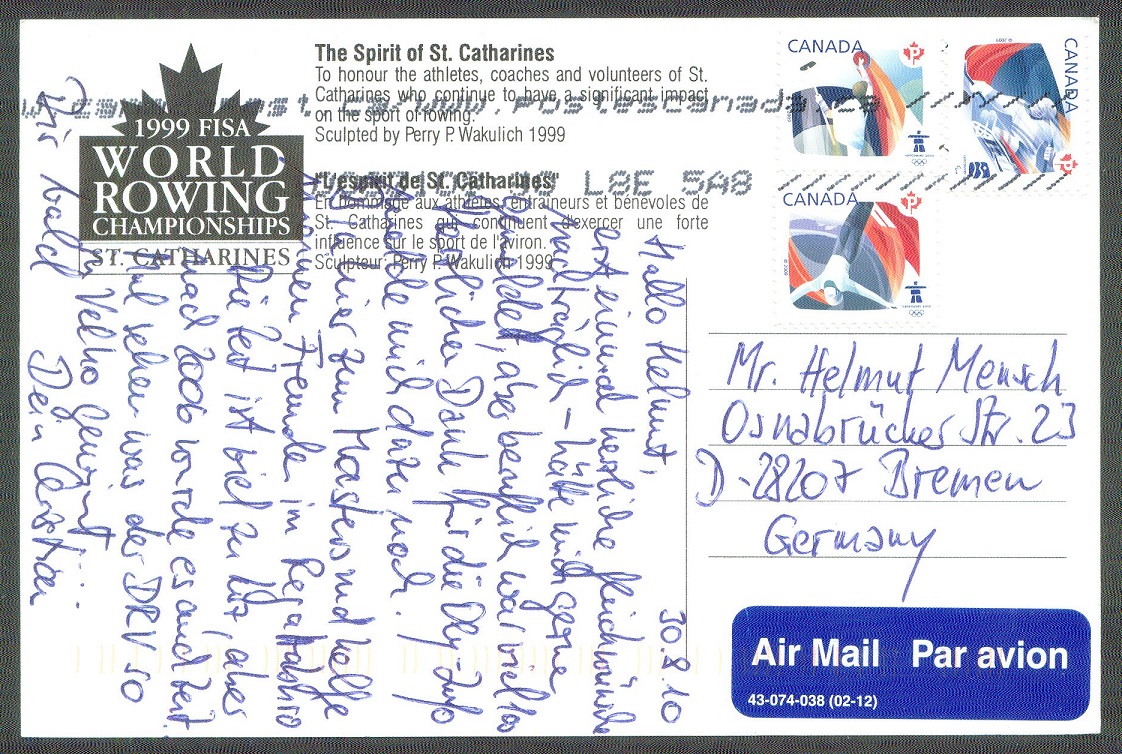 1999 FISA
WORLD
ROWING
CHAMPIONSHIPS
ST. CATHARINES
The Spirit of St. Catharines
To honour the athletes, coaches and volunteers of St.
Catharines who continue to have a significant impact
on the sport of rowing.
Sculpted by Perry P. Wakulich 1999
"L'espirit de St. Catharines"
En hommage aux athlètes, entraîneurs et bénévoles de
St. Catharines qui continuent d'exercer une forte
influence sur le sport de l'aviron.
Sculpteur: Perry P. Wakulich 1999
L8E 5A8
CANADA
CANADA
CANADA
30.8.10
Hallo Helmut,
erst einmal herzliche Glückwünsche
nachträglich – hätte mich gerne
gemeldet, aber beruflich war viel los
Herzlichen Dank für die Oly-Info
melde mich dazu noch.
hier zum Masters und helfe
Freunden im Regattabüro
Die Zeit ist viel zu kurz, aber
nach 2006 wurde es auch Zeit.
Mal sehen was der DRV so
in Velho
Bis bald
Dein
Mr. Helmut Mensch
Osnabrücker Str. 23
D-28207 Bremen
Germany
Air Mail Par avion
43-074-038 (02-12)